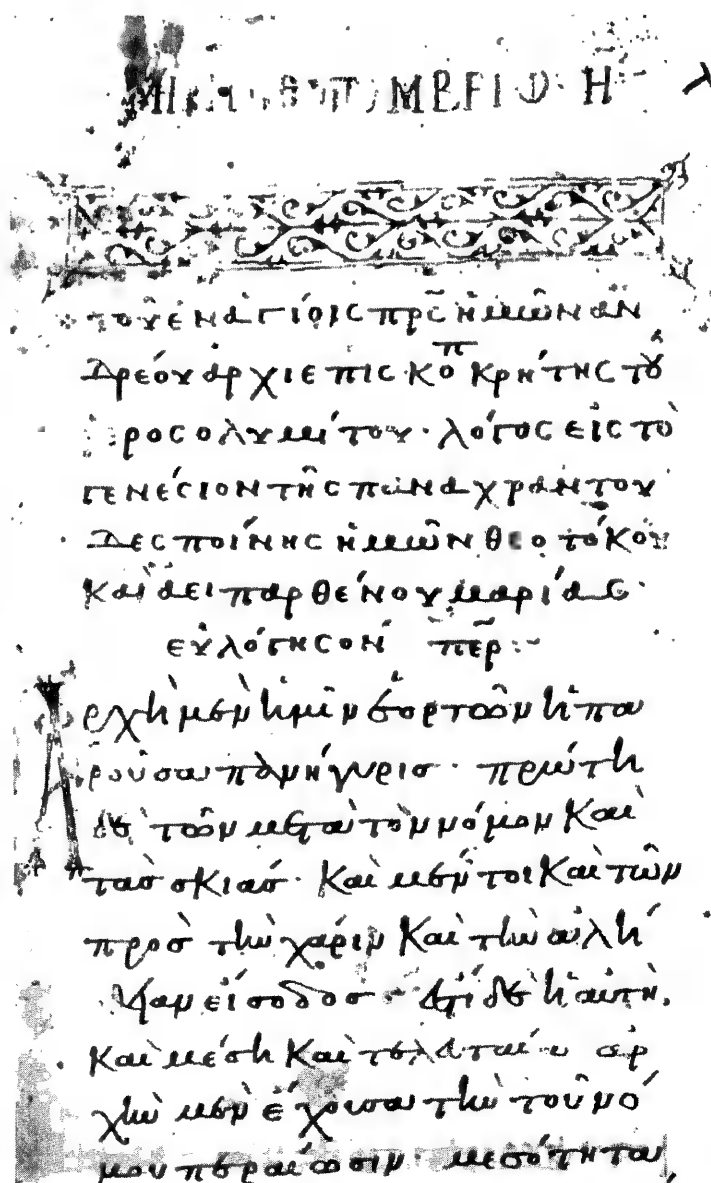 ΜΗΝΙ ΣΕΠΤΕΜΒΡΙΩ Η
τοῦ ἐν ἁγίοις πρ̅ς ἡμῶν ἀν
δρέου ἀρχιεπισκοπ κρήτης τοῦ
ἱεροσολυμίτου· λόγος εἰς τὸ
γενέσιον τῆς παναχράντου
δεσποίνης ἡμῶν θεοτόκου
καὶ ἀειπαρθένου μαρίας·
εὐλόγησον περ
Ἀρχὴ μὲν ἡμῖν ἑορτῶν ἡ πα
ροῦσα πανήγυρισ· πρώτη
δὲ τῶν μετὰ τὸν νόμον καὶ
τὰσ σκιάσ· καὶ μέν τοι καὶ τῶν
πρὸσ τὴν χάριν καὶ τὴν ἀλή
θειαν εἴσοδοσ· ἔστι δὲ ἡ αὐτὴ,
καὶ μέση καὶ τελευταία ἀρ
χὴν μὲν ἔχουσα τὴν τοῦ νό
μου περαίωσιν· μεσότητα,